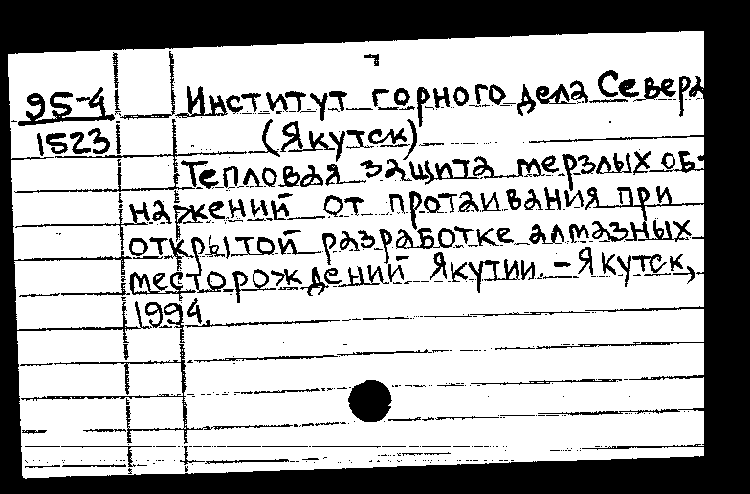 95-4
1523
Институт горного дела Севера
(Якутск)
Тепловая защита мерзлых об-
нажений от протаивания при
открытой разработке алмазных
месторождений Якутии. – Якутск,
1994.